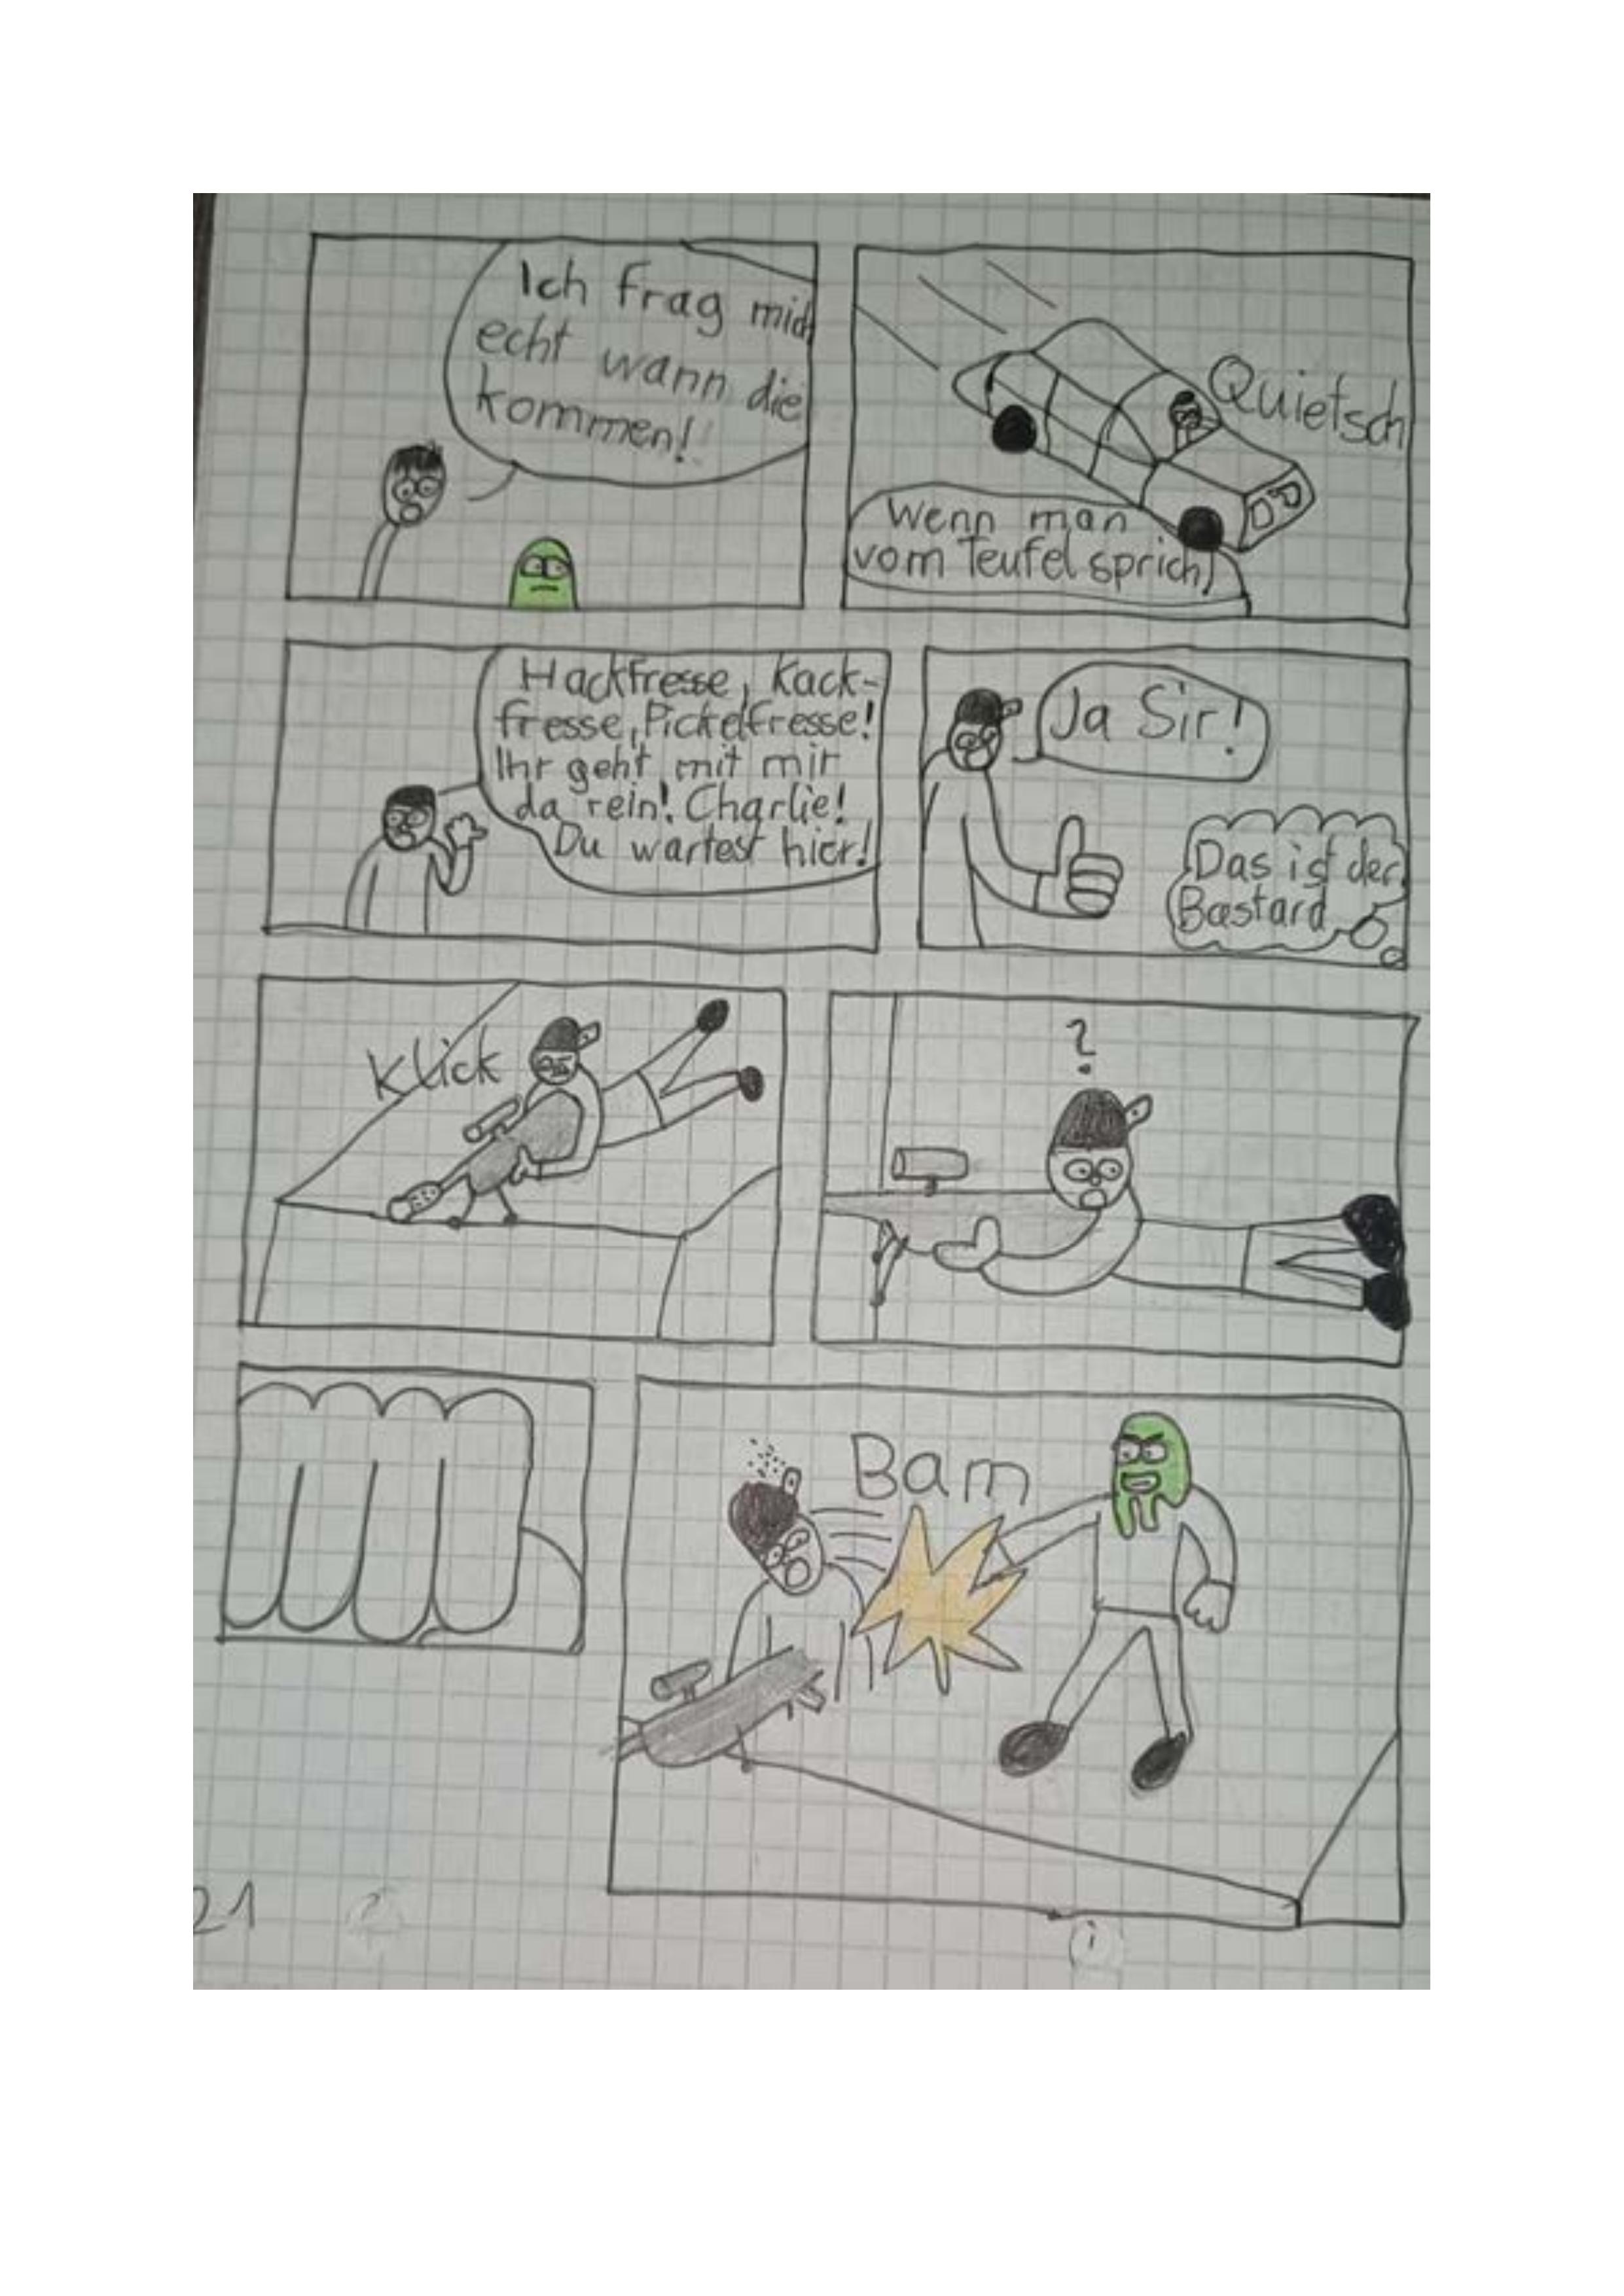 Ich frag mich
echt wann die
kommen!
Quietsch
Wenn man
vom Teufel spricht
Hackfresse, Kack-
fresse, Pickelfresse!
Ihr geht mit mir
da rein! Charlie!
Du wartest hier!
Ja Sir!
Das ist der
Bastard
Klick
?
Bam
21